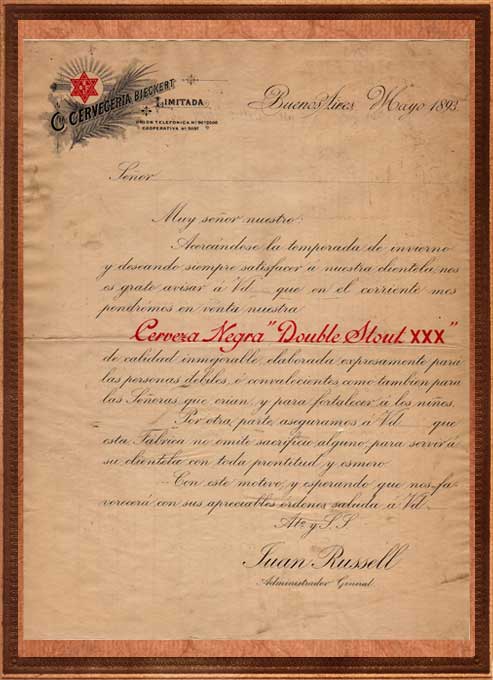 Cía CERVECERIA BIECKERT
LIMITADA
UNION TELEFONICA No
COOPERATIVA No
Buenos Aires, Mayo 1893
Señor
Muy señor nuestro:
Acercándose la temporada de invierno
y deseando siempre satisfacer á nuestra clientela, nos
es grato avisar á Vd que en el corriente mes
pondrémos en venta nuestra
Cerveza Negra "Double Stout XXX"
de calidad inmejorable, elaborada expresamente para
las personas debiles, ó convalecientes, como tambien para
las Señoras que crian, y para fortalecer á los niños.
Por otra parte, aseguramos á Vd que
esta Fábrica no omite sacrificio alguno para servir á
su clientela con toda prontitud y esmero
Con este motivo, y esperando que nos fa-
vorecerá con sus apreciables órdenes saluda á Vd.
Ato y S.S.
Juan Russell
Administrador General.